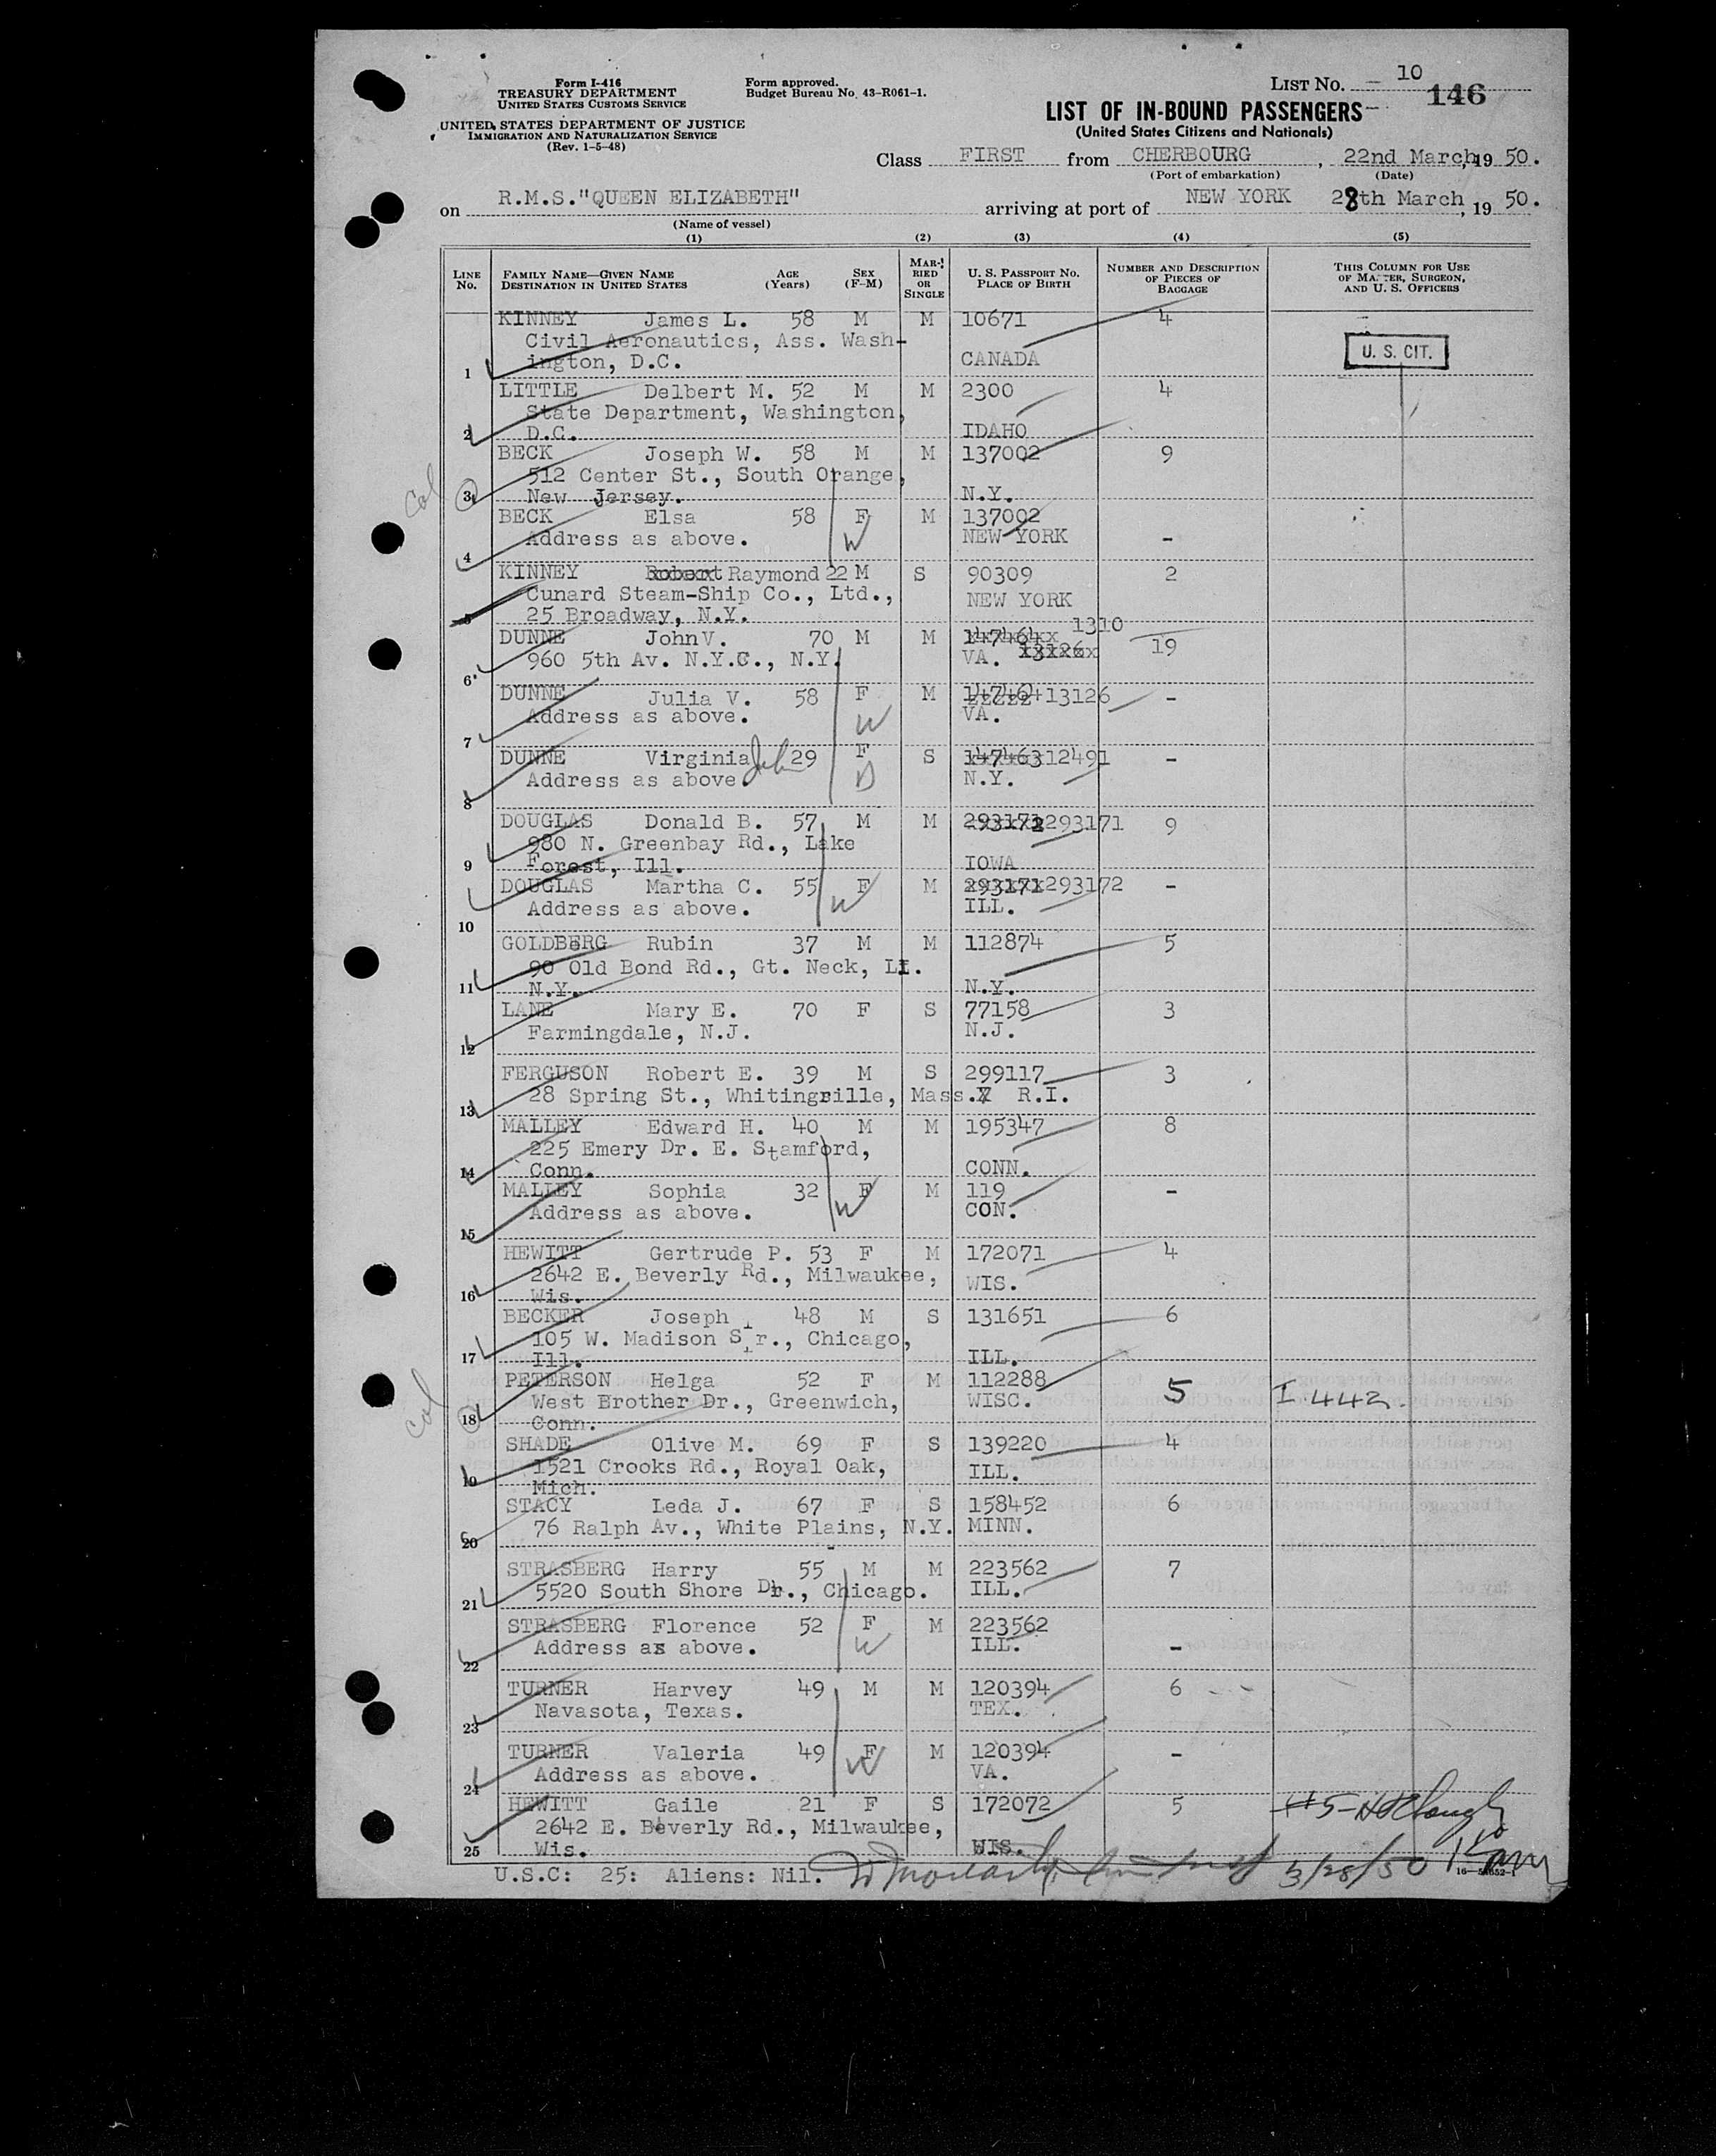 Form I-416
TREASURY DEPARTMENT
UNITED STATES CUSTOMS SERVICE
UNITED STATES DEPARTMENT OF JUSTICE
IMMIGRATION AND NATURALIZATION SERVICE
(Rev. 1-5-48)
Form approved.
Budget Bureau No. 43-R061-1.
LIST NO. 10
146
LIST OF IN-BOUND PASSENGERS
(United States Citizens and Nationals)
Class FIRST from CHERBOURG, 22nd March, 19 50.
(Port of embarkation) (Date)
on R.M.S."QUEEN ELIZABETH" arriving at port of NEW YORK 28th March, 19 50.
(Name of vessel)
(1) (2) (3) (4) (5)
LINE NO. FAMILY NAME—GIVEN NAME DESTINATION IN UNITED STATES AGE (Years) SEX (F-M) MARRIED OR SINGLE U. S. PASSPORT NO. PLACE OF BIRTH NUMBER AND DESCRIPTION OF PIECES OF BAGGAGE THIS COLUMN FOR USE OF MASTER, SURGEON, AND U. S. OFFICERS
KINNEY James L. 58 M M 10671 4
Civil Aeronautics, Ass. Wash-
U. S. CIT.
1 ington, D.C. CANADA
LITTLE Delbert M. 52 M M 2300 4
State Department, Washington,
2 D.C. IDAHO
BECK Joseph W. 58 M M 137002 9
512 Center St., South Orange,
Col 3 New Jersey. N.Y.
BECK Elsa 58 F M 137002
4 Address as above. W NEW YORK -
KINNEY Robert Raymond 22 M S 90309 2
Cunard Steam-Ship Co., Ltd., NEW YORK
5 25 Broadway, N.Y.
DUNNE John V. 70 M M 147464 1310 19
6 960 5th Av. N.Y.C., N.Y. VA. 13126
DUNNE Julia V. 58 F M 13126 -
7 Address as above. W VA.
DUNNE Virginia 29 F S 147463 12491 -
8 Address as above D N.Y.
DOUGLAS Donald B. 57 M M 293172 293171 9
980 N. Greenbay Rd., Lake
9 Forest, Ill. IOWA
DOUGLAS Martha C. 55 F M 293171 293172 -
10 Address as above. W ILL.
GOLDBERG Rubin 37 M M 112874 5
90 Old Bond Rd., Gt. Neck, LI.
11 N.Y. N.Y.
LANE Mary E. 70 F S 77158 3
12 Farmingdale, N.J. N.J.
FERGUSON Robert E. 39 M S 299117 3
13 28 Spring St., Whitingsille, Mass. R.I.
MALLEY Edward H. 40 M M 195347 8
225 Emery Dr. E. Stamford,
14 Conn. CONN.
MALLEY Sophia 32 F M 119 -
15 Address as above. W CON.
HEWITT Gertrude P. 53 F M 172071 4
2642 E. Beverly Rd., Milwaukee, WIS.
16 Wis.
BECKER Joseph 48 M S 131651 6
105 W. Madison Str., Chicago,
17 Ill. ILL.
PETERSON Helga 52 F M 112288 5 I-442.
West Brother Dr., Greenwich, WISC.
Col 18 Conn.
SHADE Olive M. 69 F S 139220 4
1521 Crooks Rd., Royal Oak, ILL.
19 Mich.
STACY Leda J. 67 F S 158452 6
20 76 Ralph Av., White Plains, N.Y. MINN.
STRASBERG Harry 55 M M 223562 7
21 5520 South Shore Dr., Chicago. ILL.
STRASBERG Florence 52 F M 223562
22 Address as above. W ILL. -
TURNER Harvey 49 M M 120394 6
23 Navasota, Texas. TEX.
TURNER Valeria 49 F M 120394 -
24 Address as above. W VA.
HEWITT Gaile 21 F S 172072 5
2642 E. Beverly Rd., Milwaukee,
25 Wis. WIS.
U.S.C: 25: Aliens: Nil. 3/28/50